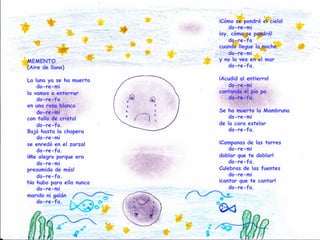 MEMENTO
(Aire de llano)
La luna ya se ha muerto
do-re-mi
la vamos a enterrar
do-re-fa
en una rosa blanca
do-re-mi
con tallo de cristal
do-re-fa.
Bajó hasta la chopera
do-re-mi
se enredó en el zarzal
do-re-fa.
¡Me alegro porque era
do-re-mi
presumida de más!
do-re-fa.
No hubo para ella nunca
do-re-mi
marido ni galán
do-re-fa.
¡Cómo se pondrá el cielo!
do-re-mi
¡ay, cómo se pondrá!
do-re-fa
cuando llegue la noche
do-re-mi
y no la vea en el mar
do-re-fa.
¡Acudid al entierro!
do-re-mi
cantando el pío pa
do-re-fa.
Se ha muerto la Mambruna
do-re-mi
de la cara estelar
do-re-fa.
¡Campanas de las torres
do-re-mi
doblar que te doblar!
do-re-fa.
Culebras de las fuentes
do-re-mi
¡cantar que te cantar!
do-re-fa.